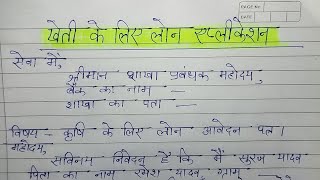 खेती के लिए लोन एप्लीकेशन
सेवा में,
श्रीमान शाखा प्रबंधक महोदय,
बैंक का नाम —
शाखा का पता —
विषय - कृषि के लिए लोन आवेदन पत्र।
महोदय,
सविनय निवेदन है कि मैं सूरज यादव
पिता का नाम रमेश यादव, ग्राम